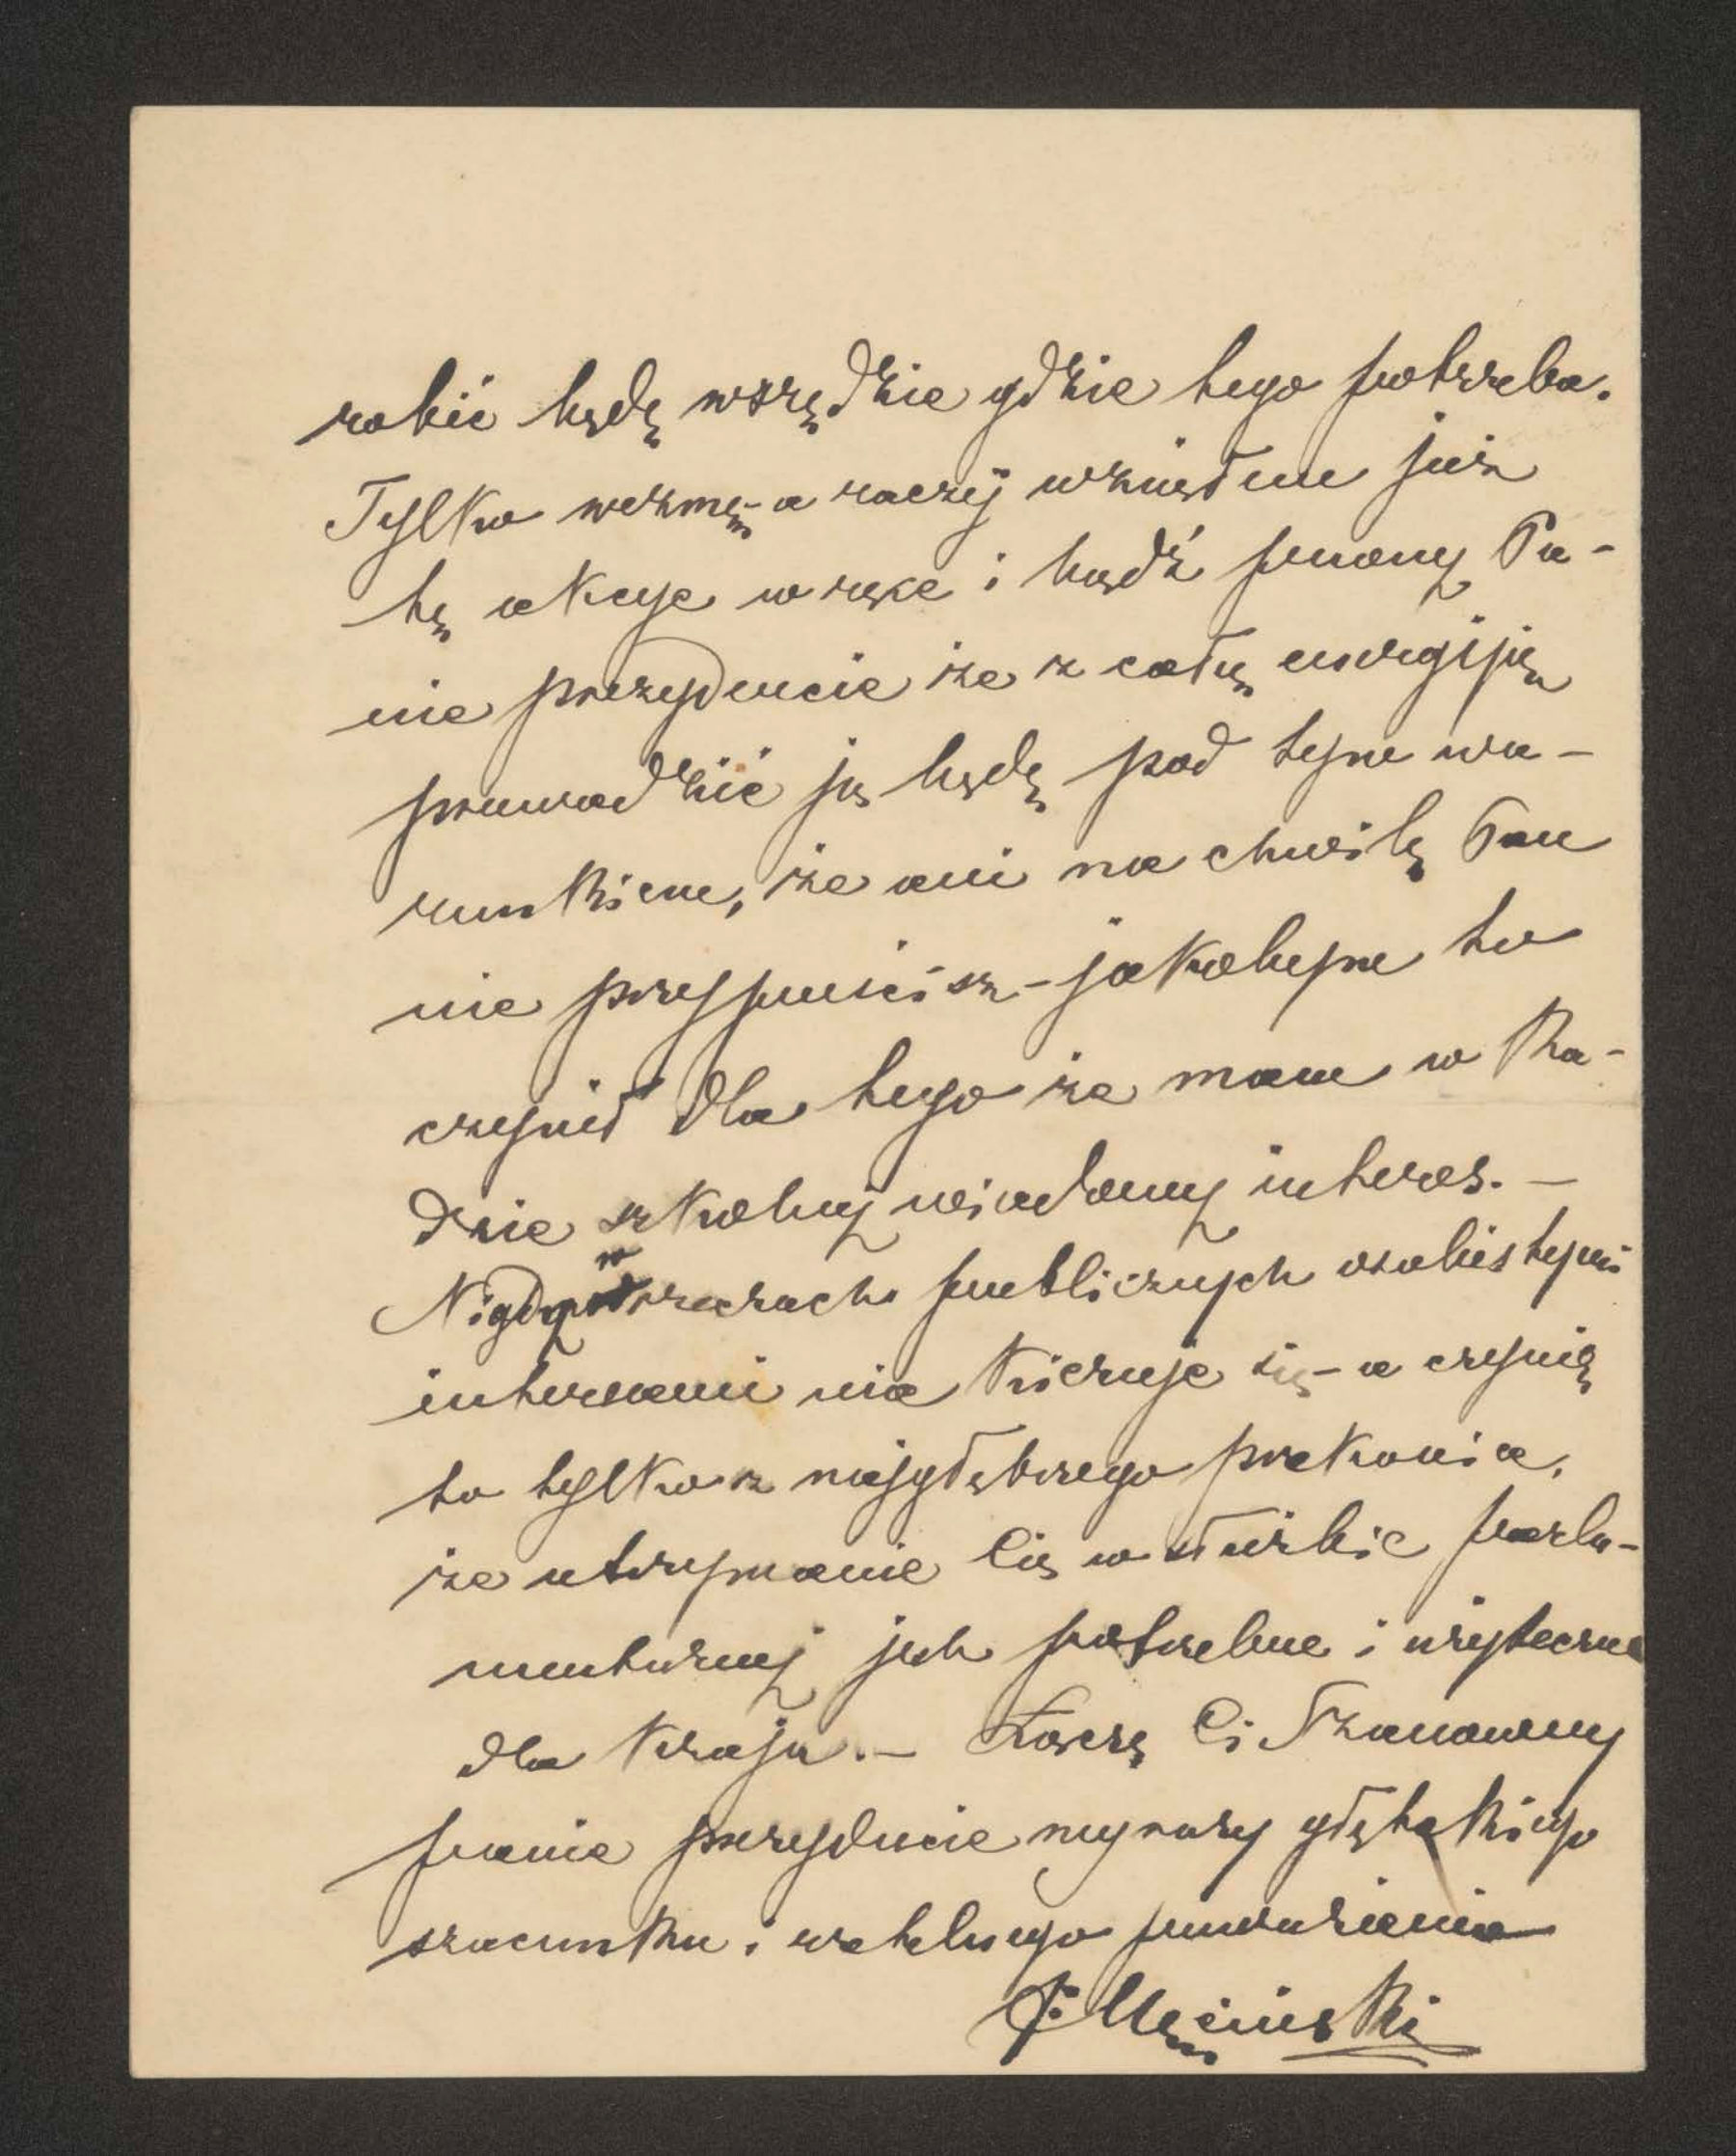 robić będę wszędzie gdzie tego potrzeba.
Tylko wezmę - a raczéj wziąłem już
tę akcye w ręce i bądź pewny Pa-
nie prezydencie że z całą energiją
prowadzić ją będę pod tym wa-
runkiem, że ani na chwilę Pan
nie przypuścisz - jakobym to
czynił dla tego że mam w Ra-
dzie szkolnej wiadomy interes. -
Nigdy w rzeczach publicznych osobistymi
interesami nie kieruje się - a czynię
to tylko z najgłębszego przekonia,
że utrzymanie Cię w służbie parla-
mentarnej jest potrzebne i użyteczne
dla kraju. - Łączę Ci Szanowny
panie prezydencie wyrazy głębokiego
szacunku i rzetelnego poważania
J. Męciński